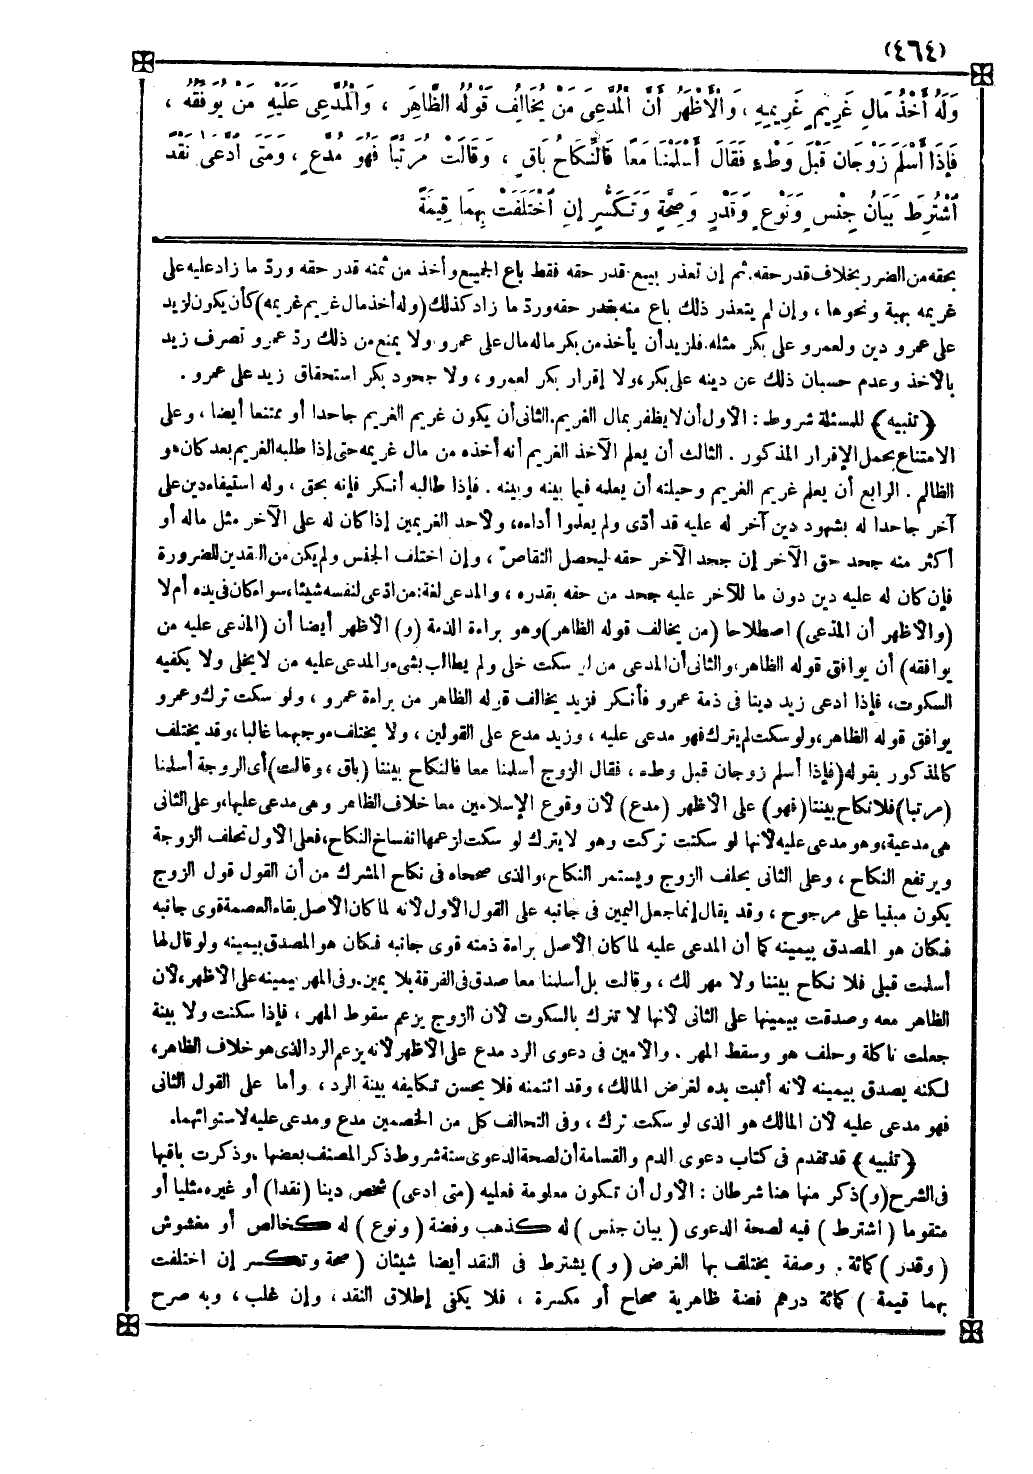 (٤٦٤)
وَلَهُ أَخْذُ مَالِ غَرِيمِ غَرِيمِهِ ، وَالْأَظْهَرُ أَنَّ الْمُدَّعِىَ مَنْ يُخَالِفُ قَوْلُهُ الظَّاهِرَ ، وَالْمُدَّعَى عَلَيْهِ مَنْ يُوَافِقُهُ ،
فَإِذَا أَسْلَمَ زَوْجَانِ قَبْلَ وَطْءٍ فَقَالَ أَسْلَمْنَا مَعًا فَالنِّكَاحُ بَاقٍ ، وَقَالَتْ مُرَتَّبًا فَهُوَ مُدَّعٍ ، وَمَتَى ادَّعَى نَقْدًا
اشْتُرِطَ بَيَانُ جِنْسٍ وَنَوْعٍ وَقَدْرٍ وَصِحَّةٍ وَتَكَسُّرٍ إِنِ اخْتَلَفَتْ بِهِمَا قِيمَةٌ
بحقه من الضرر بخلاف قدر حقه. ثم إن تعذر بيع قدر حقه فقط باع الجميع وأخذ من ثمنه قدر حقه ورد ما زاد عليه على
غريمه بهبة ونحوها ، وإن لم يتعذر ذلك باع منه بقدر حقه ورد ما زاد كذلك (وله أخذ مال غريم غريمه) كأن يكون لزيد
على عمرو دين ولعمرو على بكر مثله. فلزيد أن يأخذ من بكر ماله مال على عمرو ولا يمنع من ذلك رد عمرو تصرف زيد
بالأخذ وعدم حسبان ذلك عن دينه على بكر، ولا إقرار بكر لعمرو ، ولا جحود بكر استحقاق زيد على عمرو .
﴿تنبيه﴾ للمسئلة شروط : الأول أن لا يظفر بمال الغريم. الثانى أن يكون غريم الغريم جاحدا أو ممتنعا أيضا ، وعلى
الامتناع يحمل الإقرار المذكور . الثالث أن يعلم الآخذ الغريم أنه أخذه من مال غريمه حتى إذا طلبه الغريم بعد كان هو
الظالم . الرابع أن يعلم غريم الغريم وحيلته أن يعلمه فيما بينه وبينه . فإذا طالبه أنكر فإنه بحق ، وله استيفاء دين على
آخر جاحدا له بشهود دين آخر له عليه قد أدى ولم يعلموا أداءه، ولأحد الغريمين إذا كان له على الآخر مثل ماله أو
أكثر منه جحد حق الآخر إن جحد الآخر حقه ليحصل التقاصّ ، وإن اختلف الجنس ولم يكن من النقدين للضرورة
فإن كان له عليه دين دون ما للآخر عليه جحد من حقه بقدره ، والمدعى لغة: من ادعى لنفسه شيئا، سواء كان فى يده أم لا
(والأظهر أن المدعى) اصطلاحا (من يخالف قوله الظاهر) وهو براءة الذمة (و) الأظهر أيضا أن (المدعى عليه من
يوافقه) أن يوافق قوله الظاهر، والثانى أن المدعى من لو سكت خلى ولم يطالب بشىء والمدعى عليه من لا يخلى ولا يكفيه
السكوت، فإذا ادعى زيد دينا فى ذمة عمرو فأنكر فزيد يخالف قوله الظاهر من براءة عمرو ، ولو سكت ترك وعمرو
يوافق قوله الظاهر، ولو سكت لم يترك فهو مدعى عليه ، وزيد مدع على القولين ، ولا يختلف موجبهما غالبا ، وقد يختلف
كالمذكور بقوله (فإذا أسلم زوجان قبل وطء ، فقال الزوج أسلمنا معا فالنكاح بيننا (باق ، وقالت) أى الزوجة أسلمنا
(مرتبا) فلا نكاح بيننا (فهو) على الأظهر (مدع) لأن وقوع الإسلامين معا خلاف الظاهر وهى مدعى عليها، وعلى الثانى
هى مدعية، وهو مدعى عليه لأنها لو سكتت تركت وهو لا يترك لو سكت لزعمها انفساخ النكاح، فعلى الأول تحلف الزوجة
ويرتفع النكاح ، وعلى الثانى يحلف الزوج ويستمر النكاح، والذى صححاه فى نكاح المشرك من أن القول قول الزوج
يكون مبنيا على مرجوح ، وقد يقال إنما جعل اليمين فى جانبه على القول الأول لأنه لما كان الأصل بقاء العصمة قوى جانبه
فكان هو المصدق بيمينه كما أن المدعى عليه لما كان الأصل براءة ذمته قوى جانبه فكان هو المصدق بيمينه ولو قال لها
أسلمت قبلى فلا نكاح بيننا ولا مهر لك ، وقالت بل أسلمنا معا صدق فى الفرقة بلا يمين. وفى المهر بيمينه على الأظهر، لأن
الظاهر معه وصدقت بيمينها على الثانى لأنها لا تترك بالسكوت لأن الزوج يزعم سقوط المهر ، فإذا سكتت ولا بينة
جعلت ناكلة وحلف هو وسقط المهر . والأمين فى دعوى الرد مدع على الأظهر لأنه يزعم الرد الذى هو خلاف الظاهر،
لكنه يصدق بيمينه لأنه أثبت يده لغرض المالك، وقد ائتمنه فلا يحسن تكليفه بينة الرد ، وأما على القول الثانى
فهو مدعى عليه لأن المالك هو الذى لو سكت ترك ، وفى التحالف كل من الخصمين مدع ومدعى عليه لاستوائهما.
﴿تنبيه﴾ قد تقدم فى كتاب دعوى الدم والقسامة أن لصحة الدعوى ستة شروط ذكر المصنف بعضها . وذكرت باقيها
فى الشرح (و) ذكر منها هنا شرطان : الأول أن تكون معلومة فعليه (متى ادعى) شخص دينا (نقدا) أو غيره مثليا أو
متقوما ( اشترط ) فيه لصحة الدعوى ( بيان جنس ) له كذهب وفضة ( ونوع ) له كخالص أو مغشوش
( وقدر ) كمائة . وصفة يختلف بها الغرض ( و ) يشترط فى النقد أيضا شيئان ( صحة وتكسر إن اختلفت
بهما قيمة ) كمائة درهم فضة ظاهرية صحاح أو مكسرة ، فلا يكفى إطلاق النقد ، وإن غلب ، وبه صرح